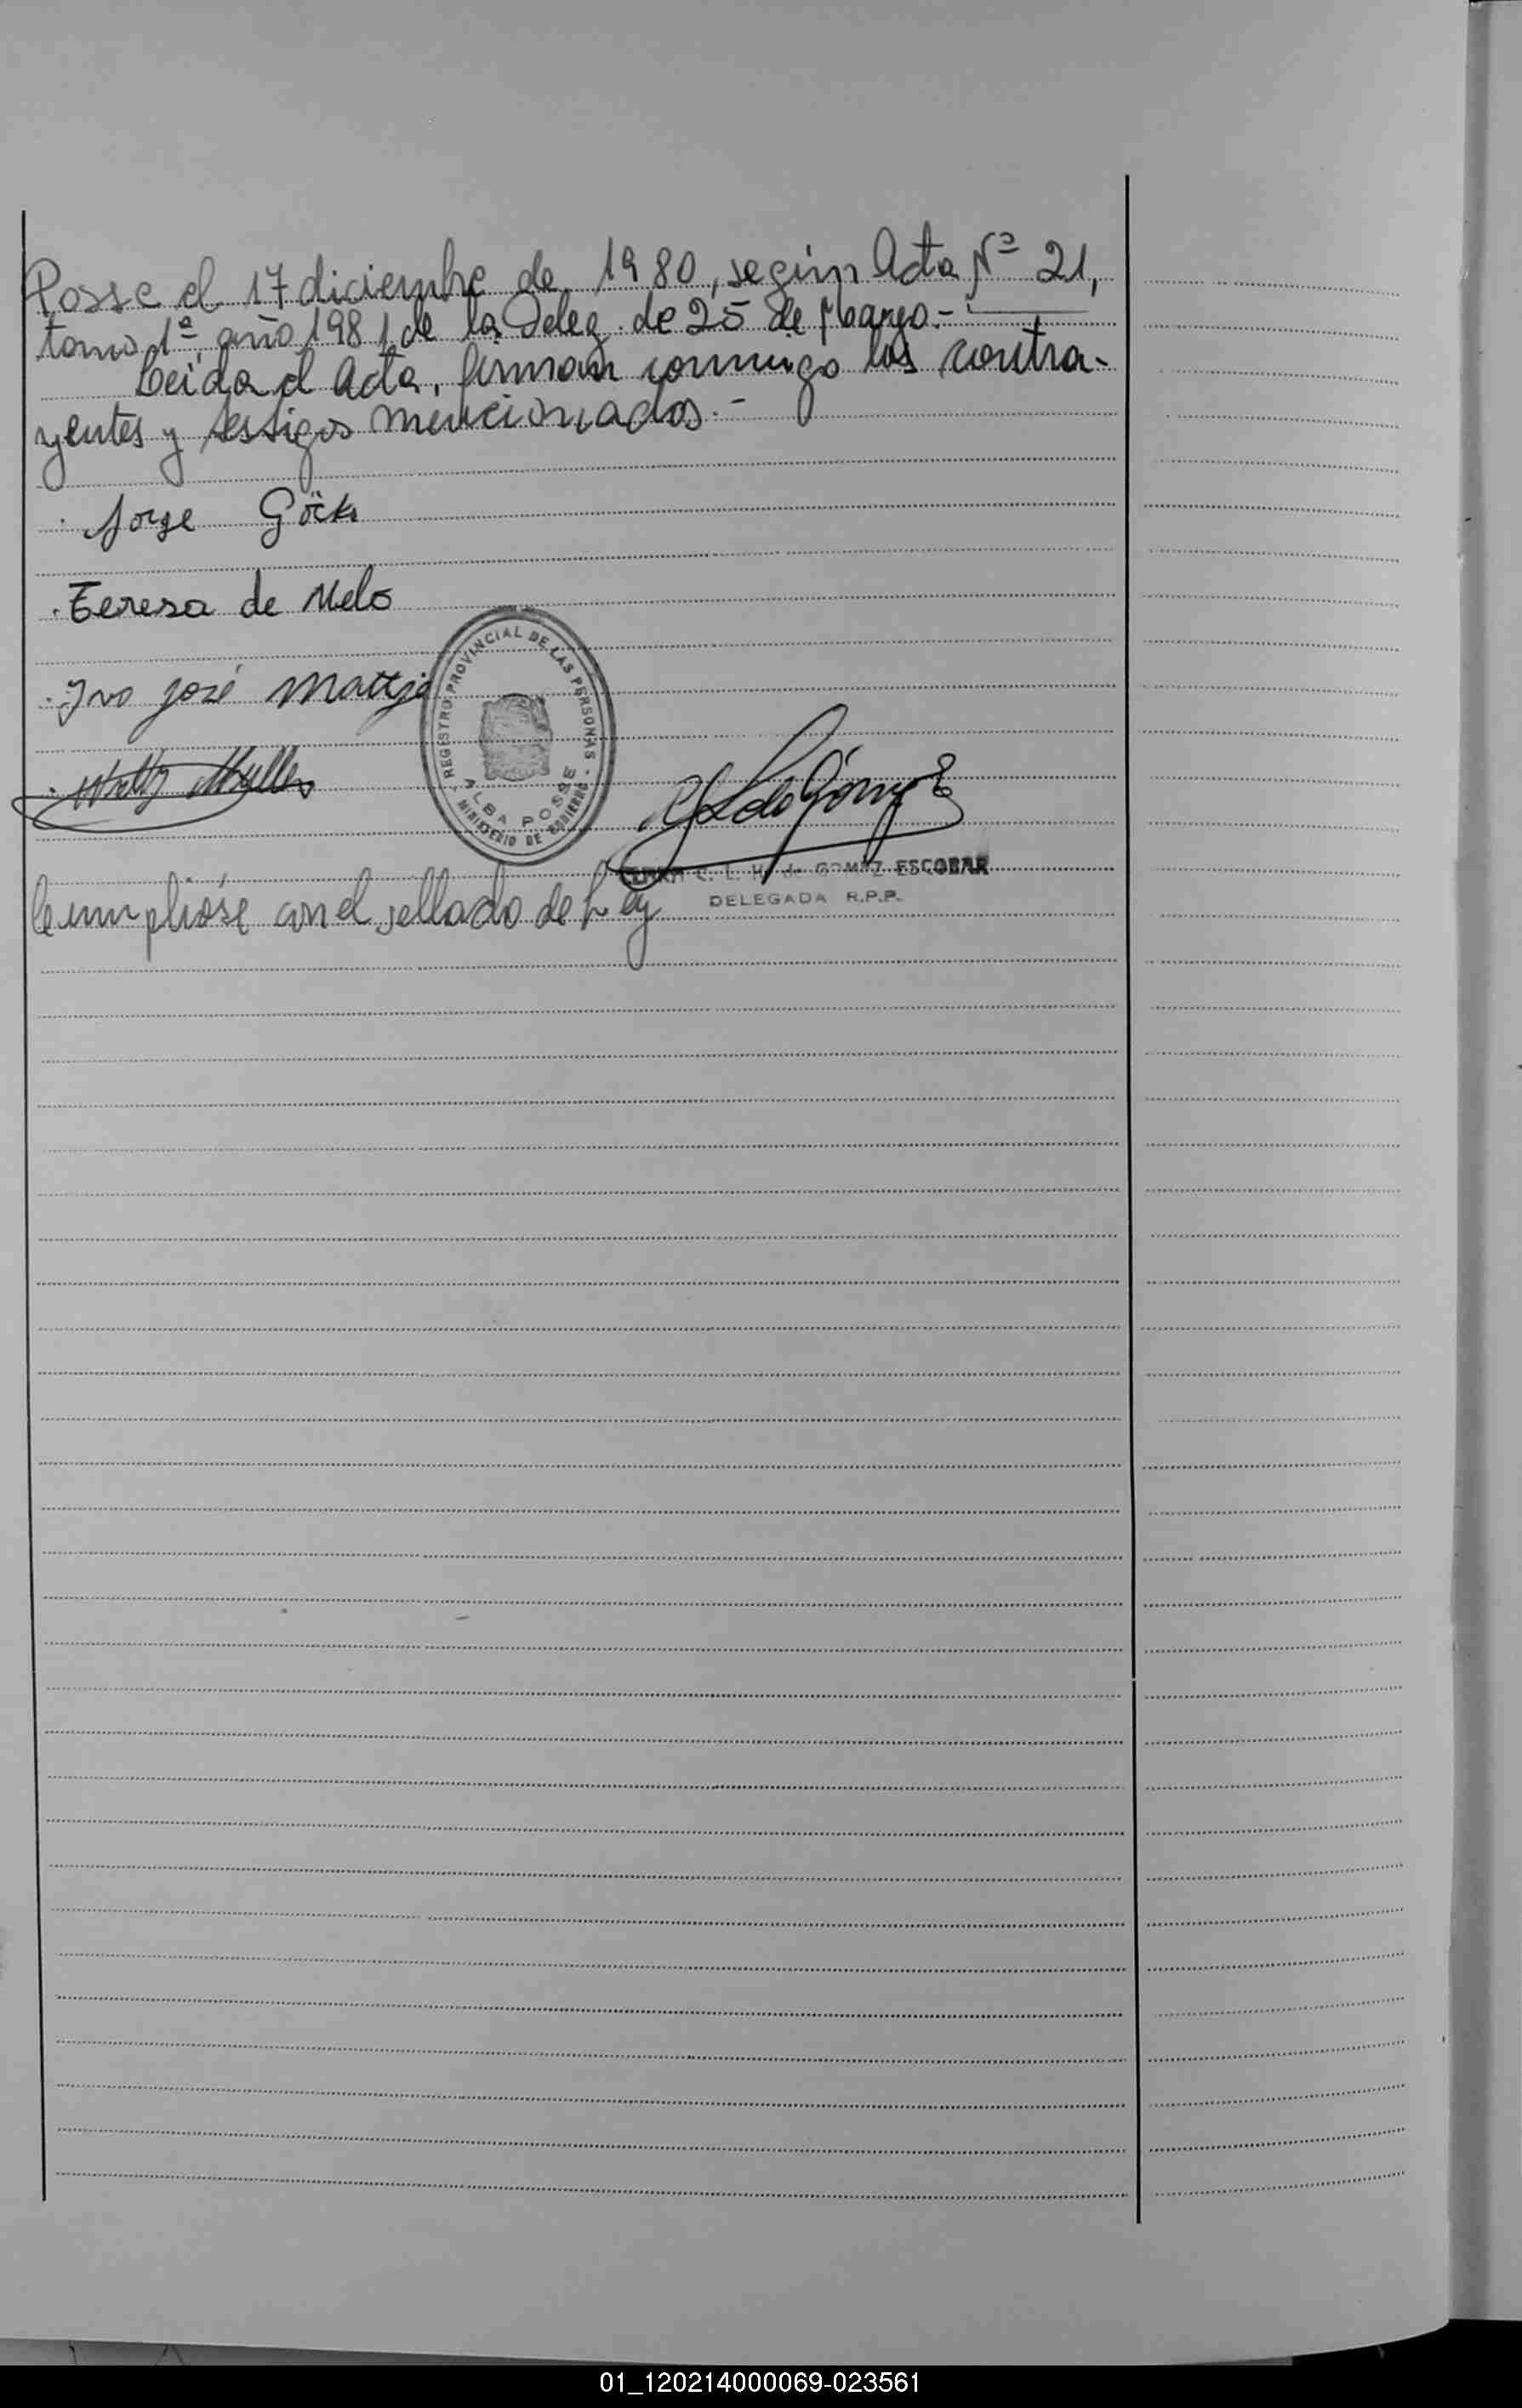 Posse el 17 diciembre de 1980, según Acta Nº 21,
tomo 1º, año 1981 de la Deleg. de 25 de Mayo.-
Leida el Acta, firman conmigo los contra-
yentes y testigos mencionados.-
Jorge
Teresa de Melo
Ivo José
REGISTRO PROVINCIAL DE LAS PERSONAS
ALBA POSSE
MINISTERIO DE GOBIERNO
C. L. H. de GOMEZ ESCOBAR
DELEGADA R.P.P.
Cumplióse con el sellado de Ley
01_120214000069-023561